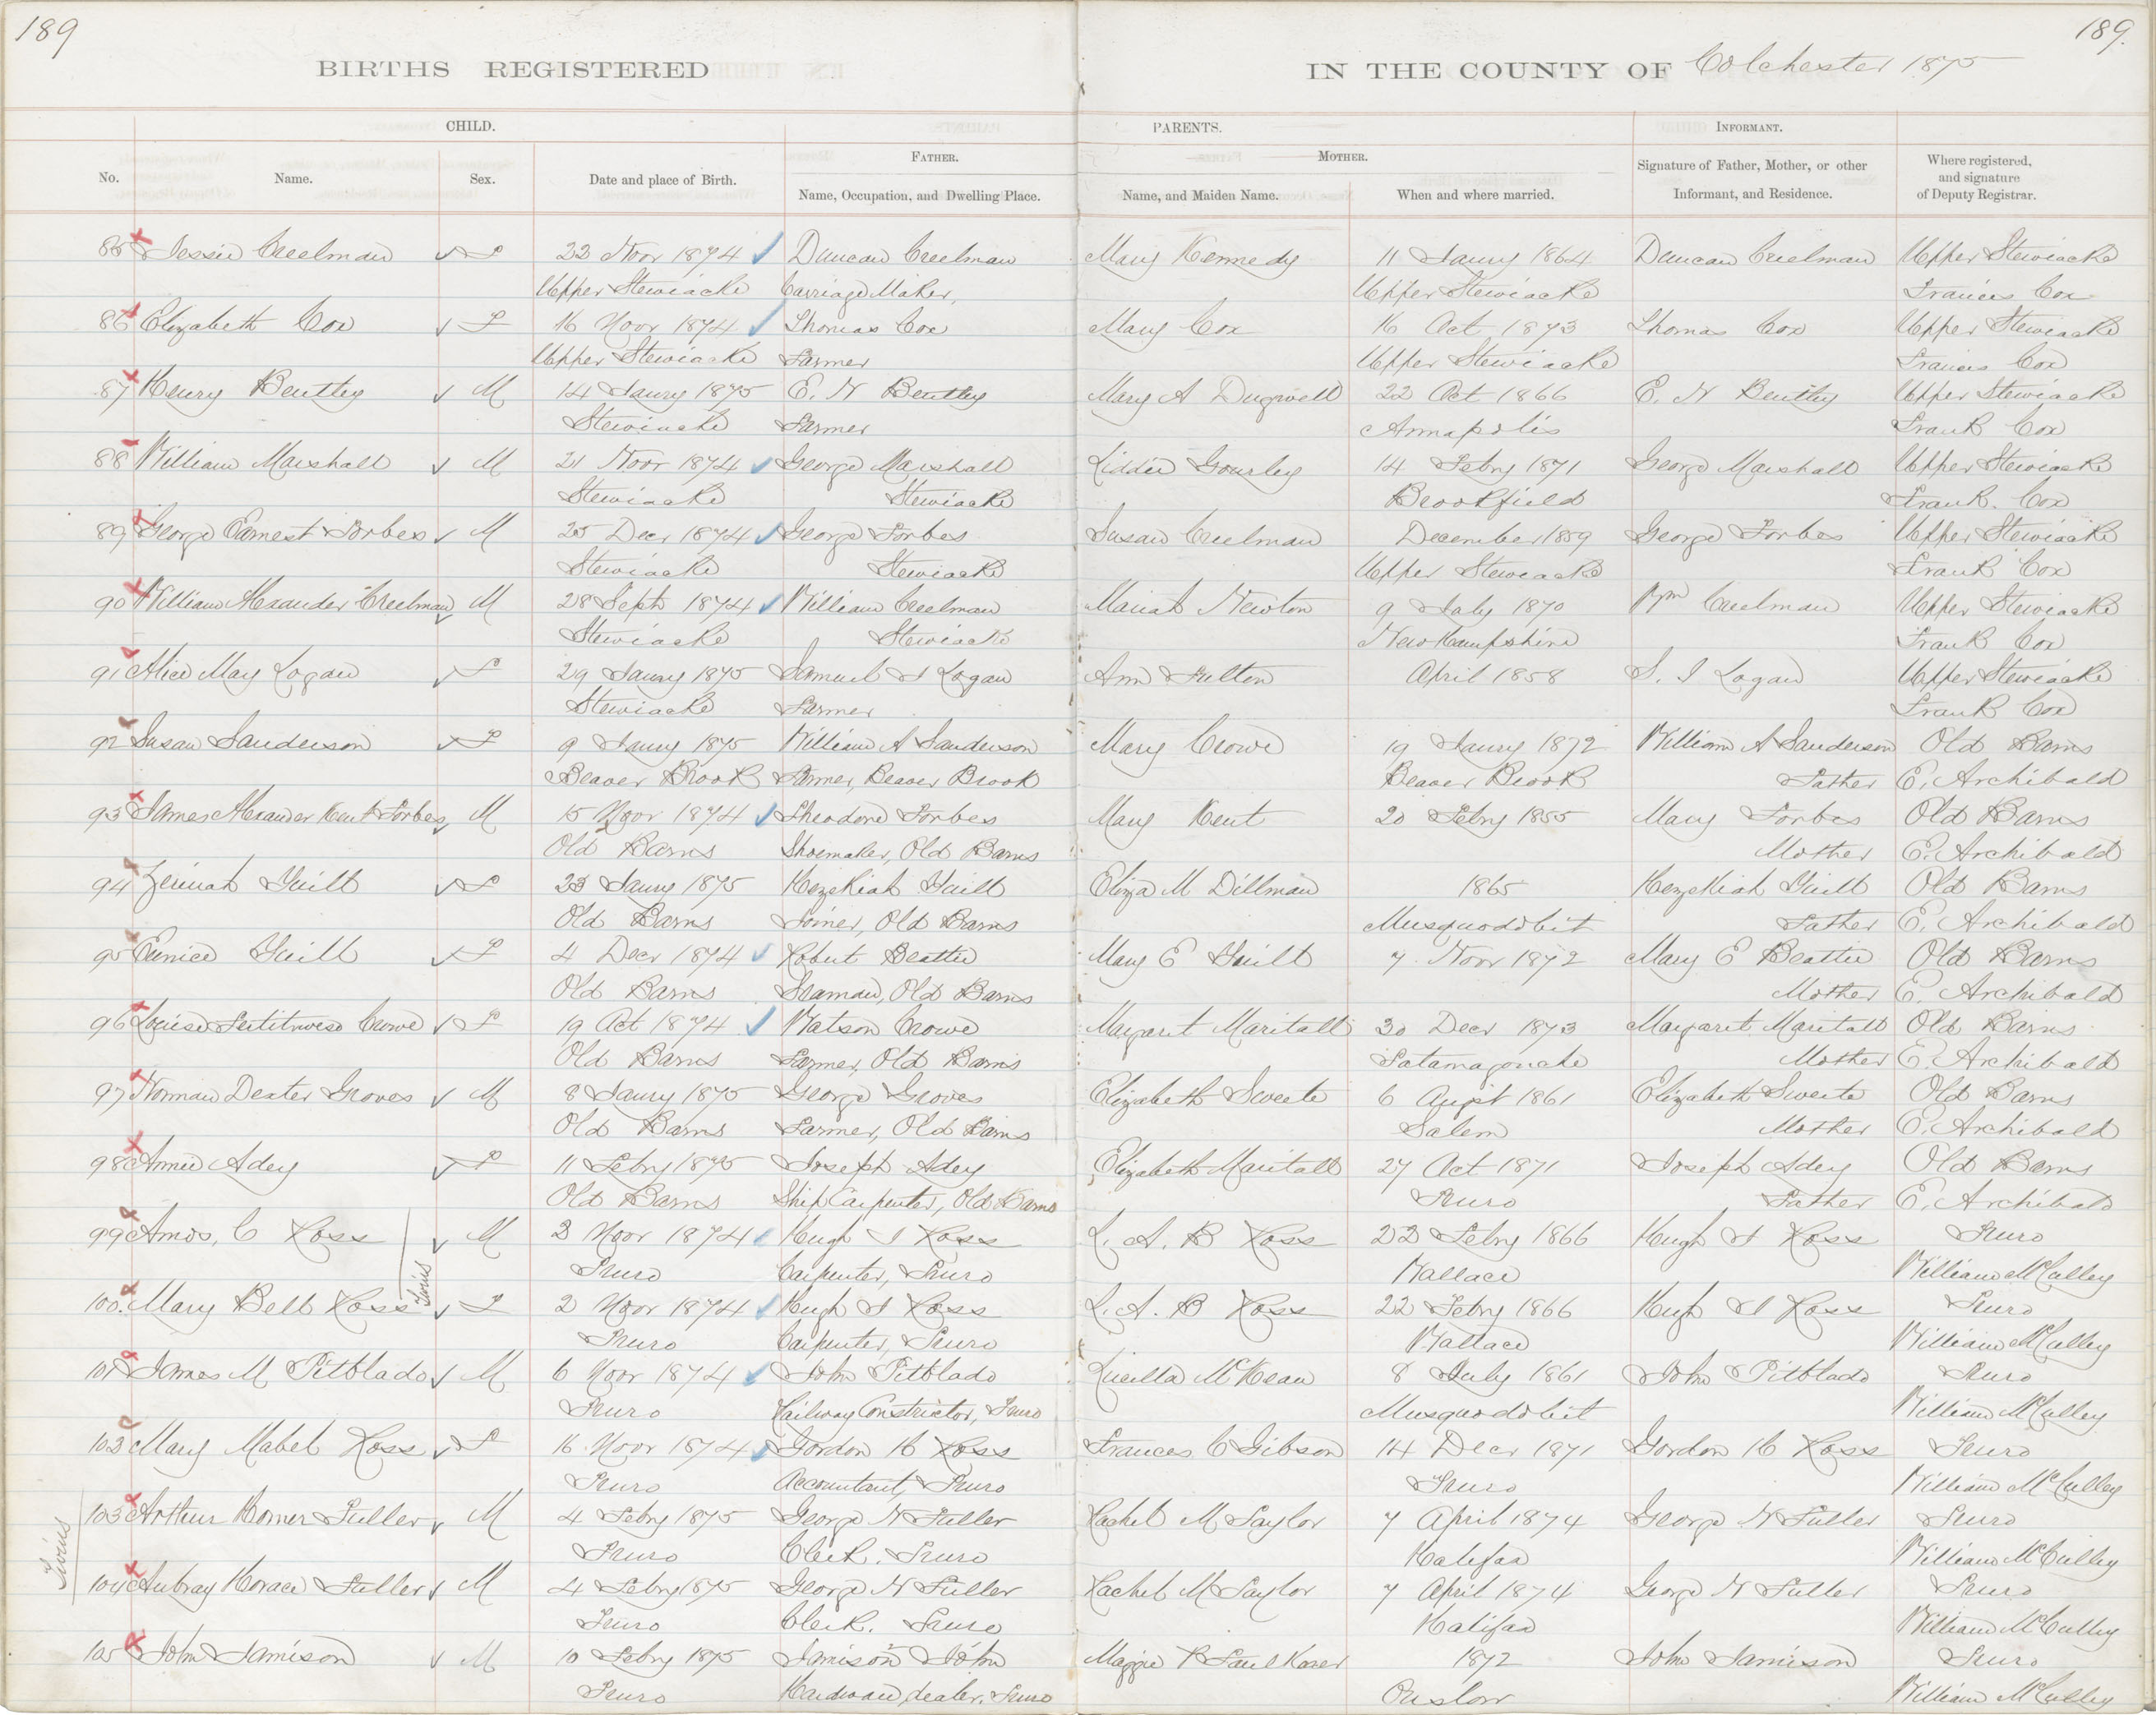 189
189.
BIRTHS REGISTERED IN THE COUNTY OF Colchester 1875
CHILD. PARENTS. INFORMANT.
FATHER. MOTHER.
No. Name. Sex. Date and place of Birth. Name, Occupation, and Dwelling Place. Name, and Maiden Name. When and where married. Signature of Father, Mother, or other Informant, and Residence. Where registered, and signature of Deputy Registrar.
85 Jessie Creelman F 22 Novr 1874 Duncan Creelman Mary Kennedy 11 Jany 1864 Duncan Creelman Upper Stewiacke
Upper Stewiacke Carriage Maker, Upper Stewiacke Francis Cox
86 Elizabeth Cox F 16 Novr 1874 Thomas Cox Mary Cox 16 Oct 1873 Thomas Cox Upper Stewiacke
Upper Stewiacke Farmer Upper Stewiacke Francis Cox
87 Henry Bentley M 14 Jany 1875 E. N Bentley Mary A Dugwell 22 Oct 1866 E. N Bentley Upper Stewiacke
Stewiacke Farmer Annapolis Frank Cox
88 William Marshall M 21 Novr 1874 George Marshall Liddie Gourley 14 Febry 1871 George Marshall Upper Stewiacke
Stewiacke Stewiacke Brookfield Frank. Cox
89 George Earnest Forbes M 25 Decr 1874 George Forbes Susan Creelman December 1859 George Forbes Upper Stewiacke
Stewiacke Stewiacke Upper Stewiacke Frank Cox
90 William Alexander Creelman M 28 Septr 1874 William Creelman Mariah Newton 9 July 1870 Wm Creelman Upper Stewiacke
Stewiacke Stewiacke New Hampshire Frank Cox
91 Alice May Logan F 29 Jany 1875 Samuel I Logan Ann Fulton April 1858 S. I Logan Upper Stewiacke
Stewiacke Farmer Frank Cox
92 Susan Sanderson F 9 Jany 1875 William A Sanderson Mary Crowe 19 Jany 1872 William A Sanderson Old Barns
Beaver Brook Farmer, Beaver Brook Beaver Brook Father E. Archibald
93 James Alexander Kent Forbes M 15 Novr 1874 Theodore Forbes Mary Kent 20 Febry 1855 Mary Forbes Old Barns
Old Barns Shoemaker, Old Barns Mother E. Archibald
94 Zeruiah Yuill F 23 Jany 1875 Hezekiah Yuill Eliza M Dillman 1865 Hezekiah Yuill Old Barns
Old Barns Joiner, Old Barns Musquodobit Father E. Archibald
95 Eunice Yuill F 4 Decr 1874 Robert Beattie Mary E Yuill 7 Novr 1872 Mary E Beattie Old Barns
Old Barns Seaman, Old Barns Mother E. Archibald
96 Louisa Crowe F 19 Oct 1874 Watson Crowe Margaret Maritall 30 Decr 1873 Margaret Maritall Old Barns
Old Barns Farmer, Old Barns Tatamagouche Mother E. Archibald
97 Norman Dexter Groves M 8 Jany 1875 George Groves Elizabeth Sweete 6 Augst 1861 Elizabeth Sweete Old Barns
Old Barns Farmer, Old Barns Salem Mother E. Archibald
98 Annie Adey F 11 Febry 1875 Joseph Adey Elizabeth Maritall 27 Oct 1871 Joseph Adey Old Barns
Old Barns Ship Carpenter, Old Barns Truro Father E. Archibald
99 Amos, C Ross M 2 Novr 1874 Hugh I Ross L. A. B Ross 22 Febry 1866 Hugh I Ross Truro
Truro Carpenter, Truro Wallace William McCulley
Twins
100. Mary Bell Ross F 2 Novr 1874 Hugh I Ross L. A. B Ross 22 Febry 1866 Hugh I Ross Truro
Truro Carpenter, Truro Wallace William McCulley
101 James M Pitblado M 6 Novr 1874 John Pitblado Luella McKean 8 July 1861 John Pitblado Truro
Truro Railway Constrictor, Truro Musquodobit William McCulley
102 Mary Mabel Ross F 16 Novr 1874 Gordon H Ross Frances C Gibson 14 Decr 1871 Gordon H Ross Truro
Truro Accountant, Truro Truro William McCulley
Twins
103 Arthur Homer Fuller M 4 Febry 1875 George N Fuller Rachel M Taylor 7 April 1874 George N Fuller Truro
Truro Clerk. Truro Halifax William McCulley
104 Aubray Horace Fuller M 4 Febry 1875 George N Fuller Rachel M Taylor 7 April 1874 George N Fuller Truro
Truro Clerk. Truro Halifax William McCulley
105 John Jamison M 10 Febry 1875 Jamison John Maggie R Faulkner 1872 John Jamison Truro
Truro Hardware, dealer. Truro Onslow William McCulley